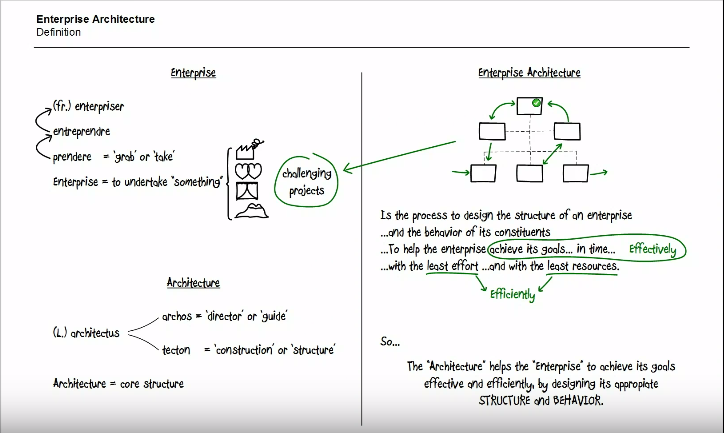 Enterprise Architecture
Definition
Enterprise
(fr.) enterpriser
entreprendre
prendere = 'grab' or 'take'
Enterprise = to undertake "something"
challenging
projects
Architecture
(L.) architectus
archos = 'director' or 'guide'
tecton = 'construction' or 'structure'
Architecture = core structure
Enterprise Architecture
Is the process to design the structure of an enterprise
...and the behavior of its constituents
...To help the enterprise achieve its goals... in time... Effectively
...with the least effort ...and with the least resources.
Efficiently
So...
The "Architecture" helps the "Enterprise" to achieve its goals
effective and efficiently, by designing its appropiate
STRUCTURE and BEHAVIOR.